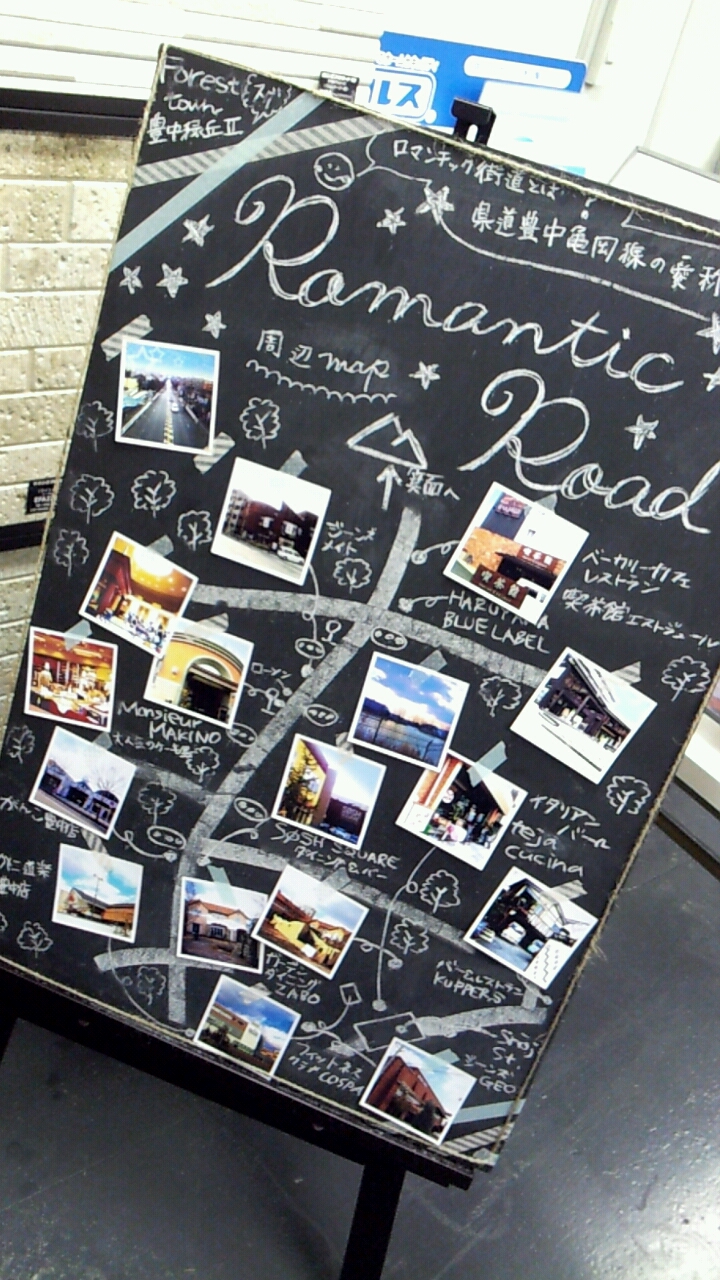 Forest
town
豊中緑丘Ⅱ
ルス
ロマンチック街道とは…?
県道豊中亀岡線の愛称
Romantic
Road
周辺map
箕面へ
ジーンズ
メイト
喫茶館
ベーカリーカフェ
レストラン
喫茶館エストジュール
HARUYAMA
BLUE LABEL
ローソン
Monsieur
MAKINO
大人のケーキ屋
イタリアン
バール
teja
cucina
SØSH SQUARE
ダイニング&バー
がんこ豊中店
かに道楽
豊中店
ガーデン
ダイニング
ZABO
KUPPERS
フィットネス
クラブCOSPA
GEO